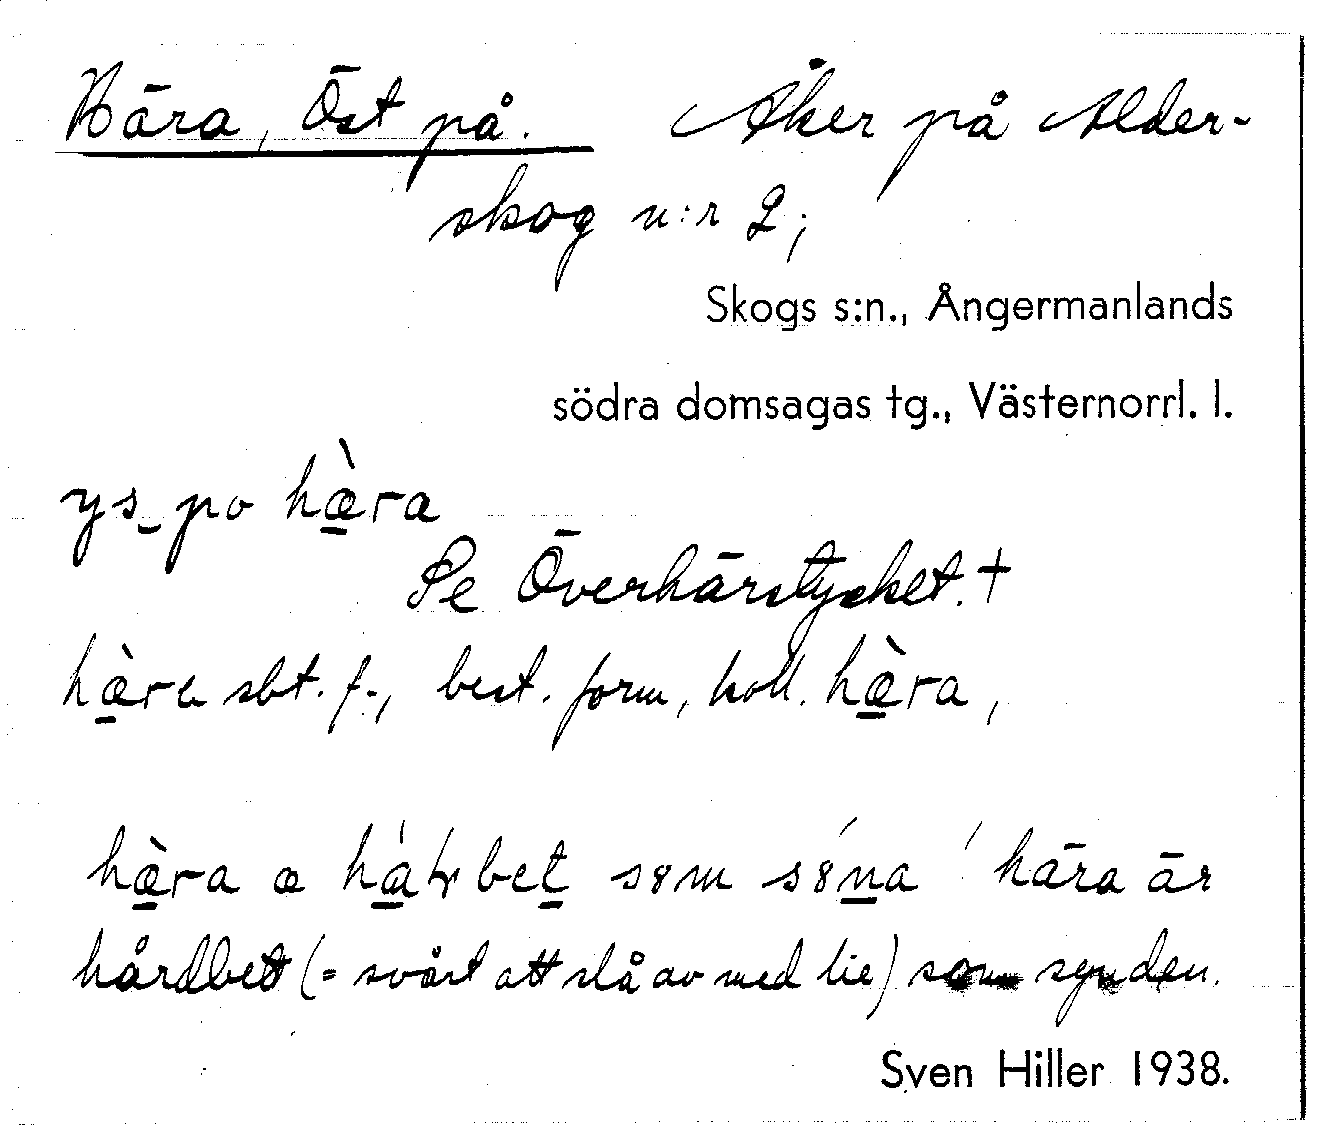 Hära, Öst på. Åker på Alder-
skog n:r 2;
Skogs s:n., Ångermanlands
södra domsagas tg., Västernorrl. l.
ys_ po hæ̀ra
Se Överhärstycket. +
hæ̀ra sbt. f., best. form, koll. hæ̀ra,
hæ̀ra æ bet som ' hära är
hårdbett (= svårt att slå av med lie) som synden.
Sven Hiller 1938.